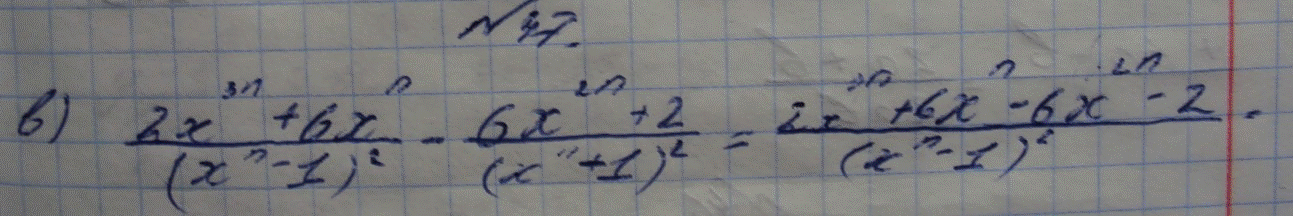 № 47.
в) (2x³ⁿ + 6xⁿ)/(xⁿ - 1)² - (6x²ⁿ + 2)/(xⁿ + 1)² = (2x³ⁿ + 6xⁿ - 6x²ⁿ - 2)/(xⁿ - 1)² =